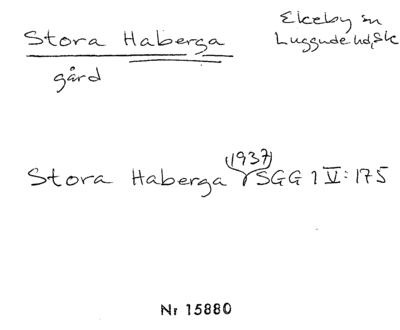 Stora Haberga
Ekeby sn
Luggude hd, Sk
gård
(1937)
Stora Haberga SGG 1 V: 175
Nr 15880